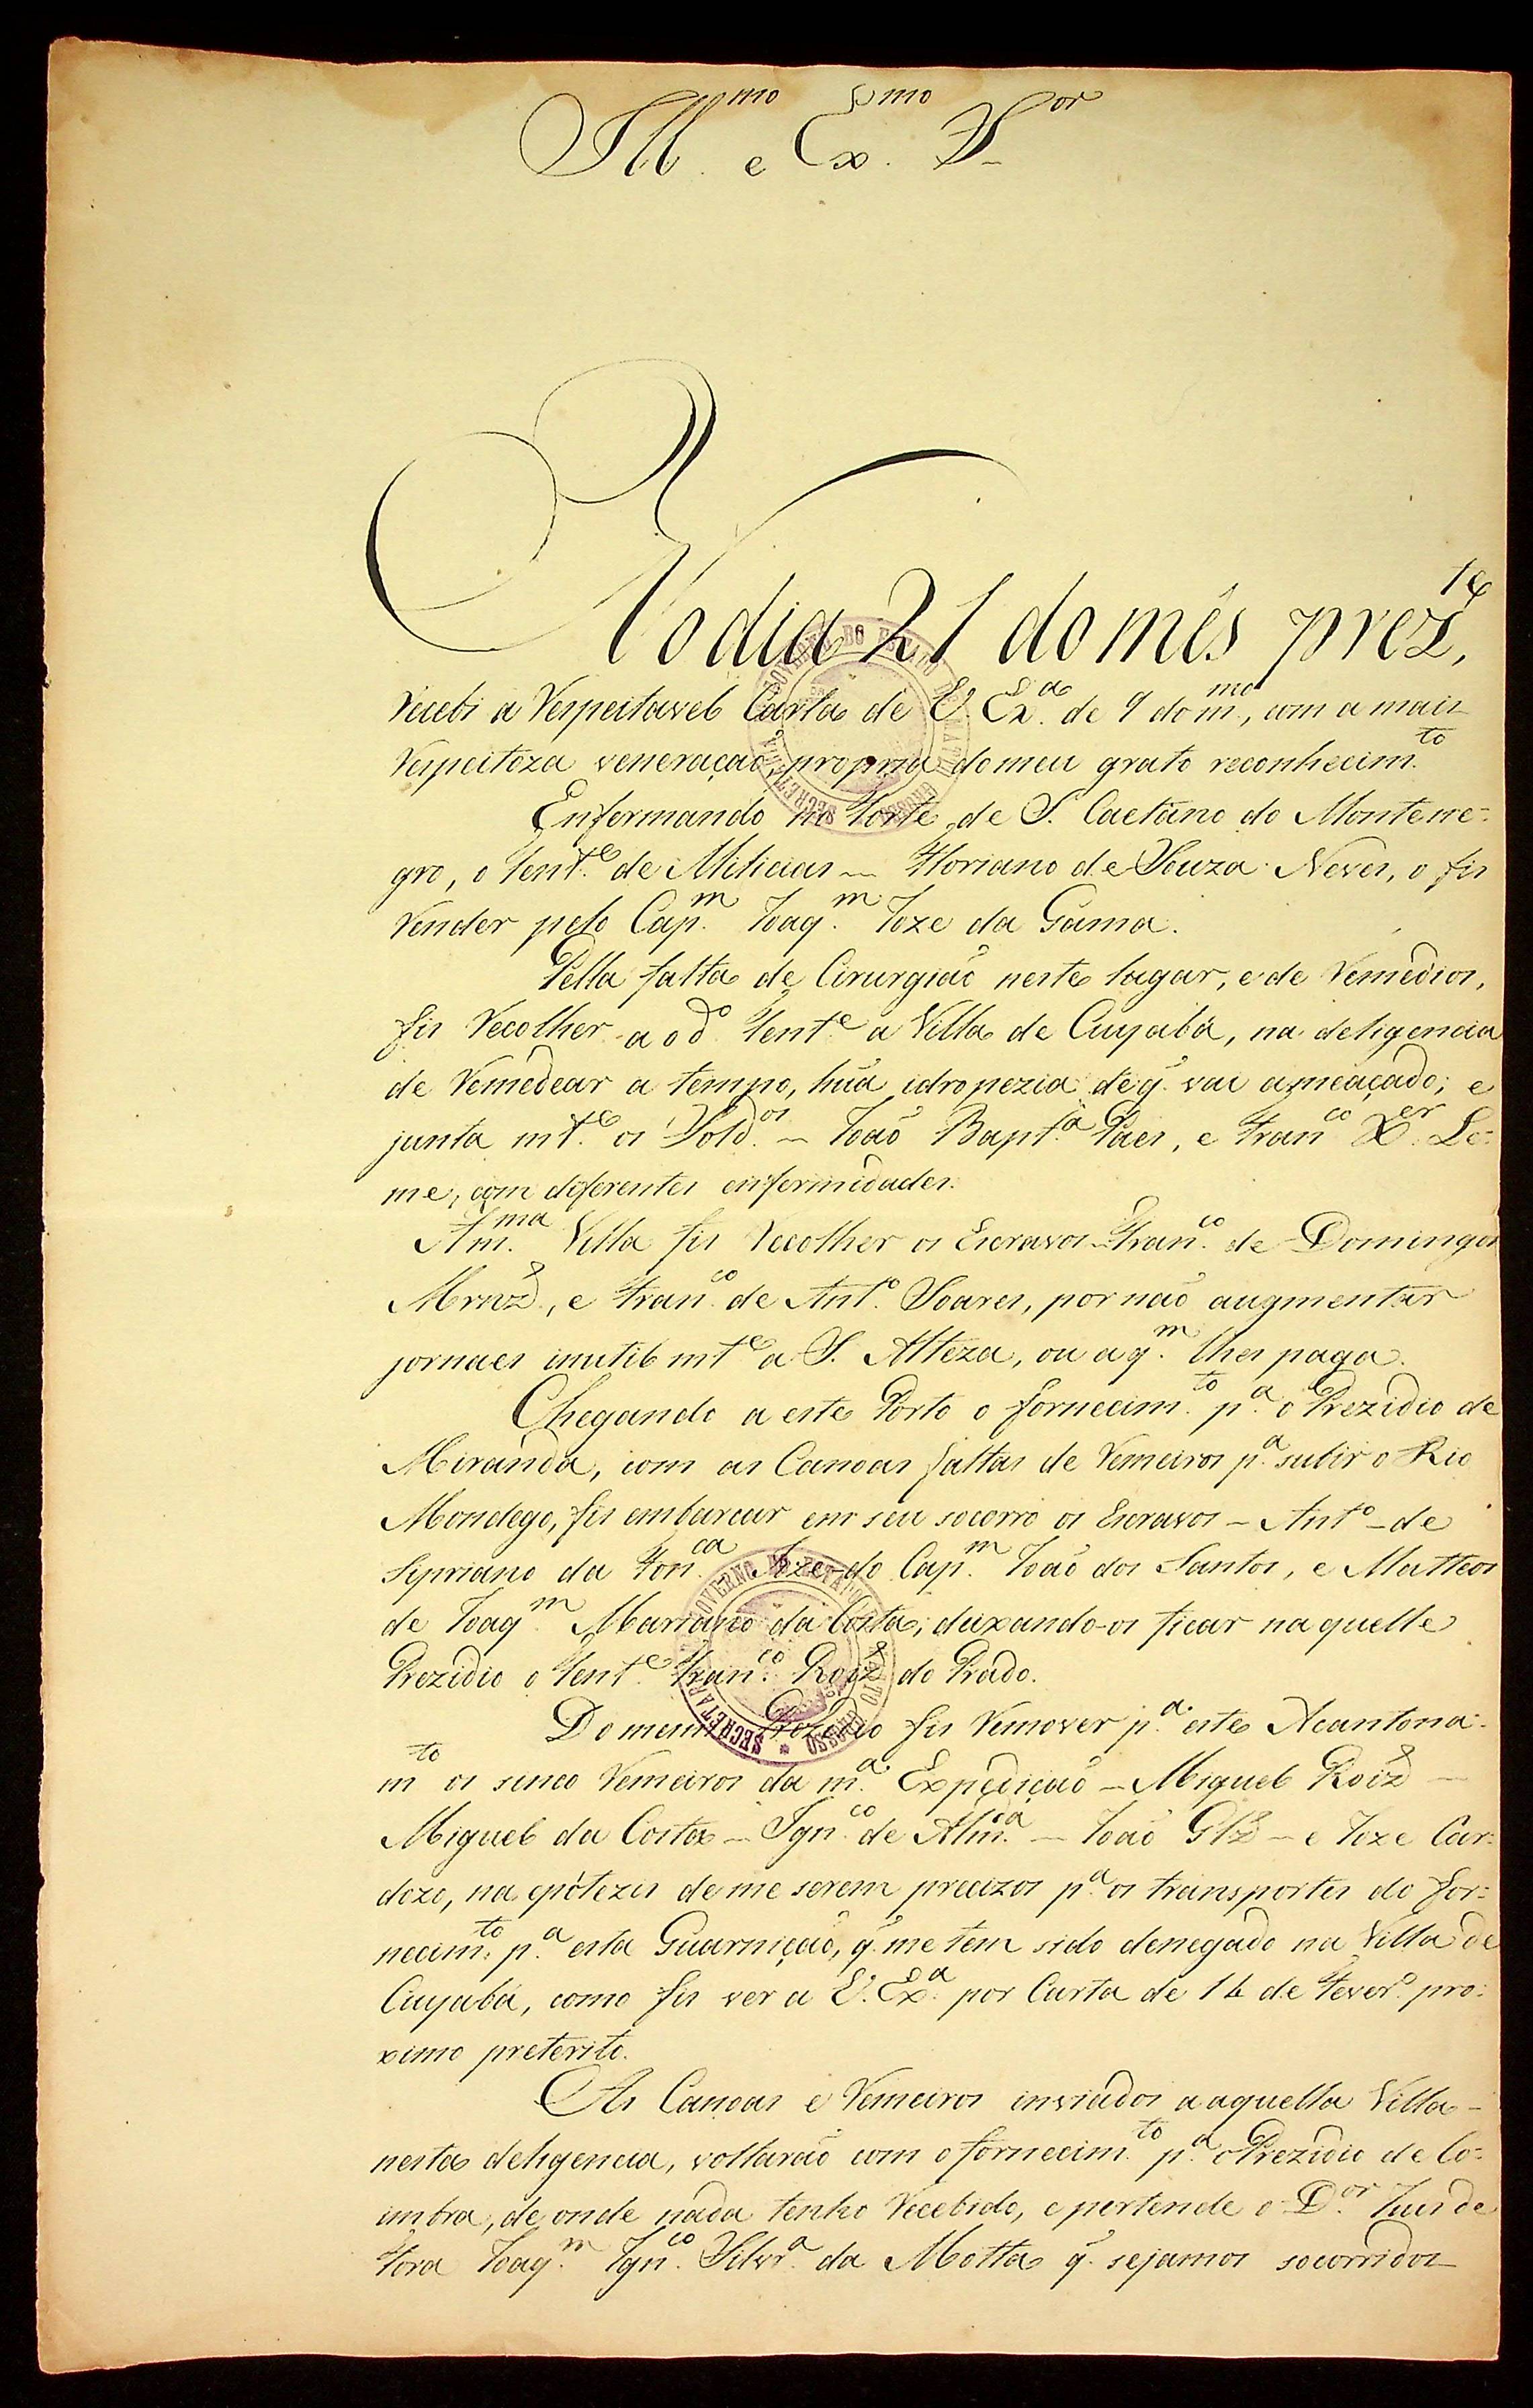 Ill.mo e Ex.mo S.or
No dia 21 do mês prez.te,
recebi a respeitavel Carta de V. Ex.a de 9 do m.mo, com a mais
respeitoza veneração, propria do meu grato reconhecim.to
Enfermando no Forte de S. Caetano do Montene=
gro, o Tent.e de Milicias — Floriano de Souza Neves, o fis
render pelo Cap.m Joaq.m Joze da Gama.
Pella falta de Cirurgião neste lugar, e de remedios,
fis recolher a o d.o Tent.e a Villa de Cuyabá, na deligencia
de remedear a tempo, hũa idropezia de q̃ vai ameaçado; e
junta mt.e os Sold.os — João Bapt.a Paes, e Fran.co X.er Le=
me, com diferentes enfermidades.
A m.ma Villa fis recolher os Escravos — Fran.co de Domingos
Mrnz̃, e Fran.co de Ant.o Soares, por não augmentar
jornaes inutil mt.e a S. Alteza, ou a q.m lhes paga.
Chegando a este Porto o fornecim.to p.a o Prezidio de
Miranda, com as Canoas faltas de remeiros p.a subir o Rio
Mondego, fis embarcar em seu socorro os Escravos — Ant.o — de
Sipriano da Fon.ca Joze do Cap.m João dos Santos, e Matteos
de Joaq.m Mariano da Costa; deixando-os ficar na quelle
Prezidio o Tent.e Fran.co Roiz̃ do Prado.
Do mesmo Prezidio fis remover p.a este Acantona=
m.to os sinco remeiros da m.a Expedição — Miguel Roiz̃ —
Miguel da Costa — Ign.co de Alm.da — João Glz̃ — e Joze Car=
dozo, na ipòtezis de me serem precizos p.a os transportes do for=
necim.to p.a esta Guarnição, q̃ me tem sido denegado na Villa de
Cuyabá, como fis ver a V. Ex.a por Carta de 14 de Fever.o pro=
ximo preterito.
As Canoas e remeiros inviados a aquella Villa —
nesta deligencia, voltarão com o fornecim.to p.a o Prezidio de Co=
imbra, de onde nada tenho recebido, e pertende o D.or Juis de
Fora Joaq.m Ign.co Silvr.a da Motta q̃ sejamos socorridos
SECRETARIA DO GOVERNO DO ESTADO DE MATTO GROSSO
SECRETARIA DO GOVERNO DO ESTADO DE MATTO GROSSO